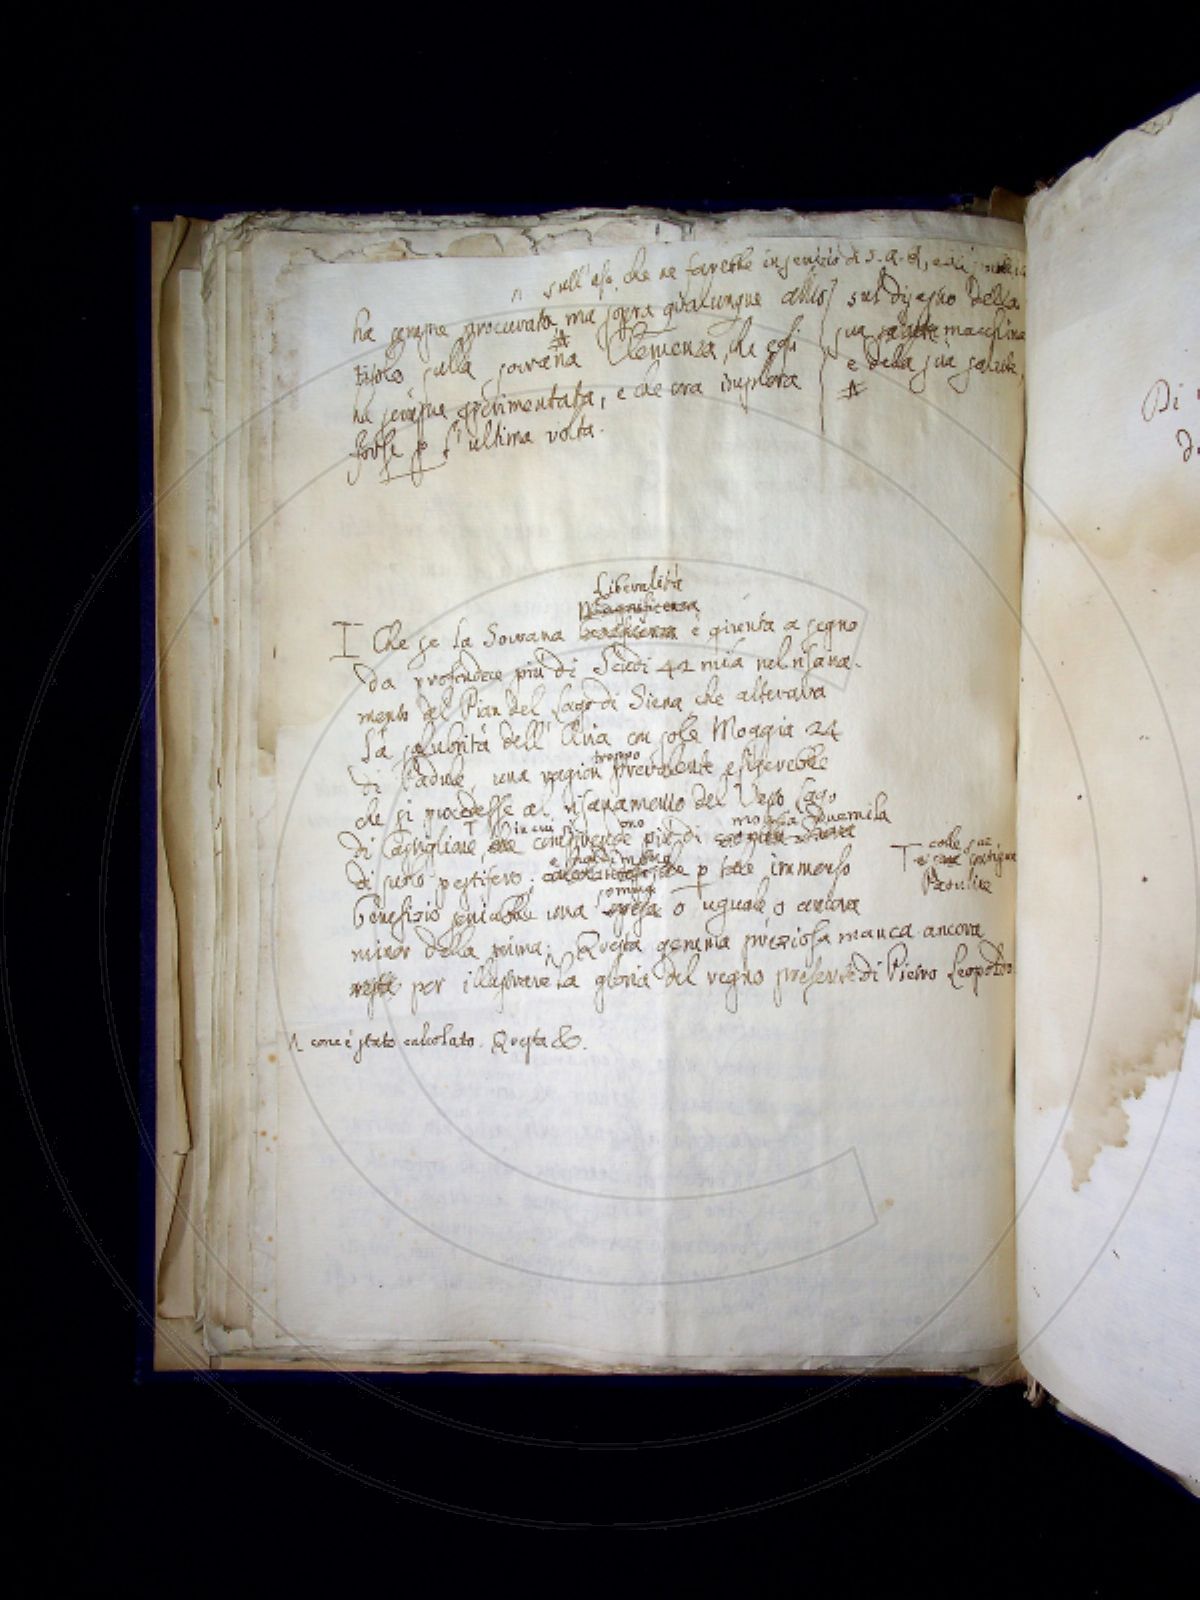 ∩ sull'uso, che ne farebbe in servizio di S. A. R., e di
ha sempre procurato, ma sopra qualunque altro
titolo sulla sovrana Clemenza, che egli
ha sempre sperimentata, e che ora implora
forse p l'ultima volta.
sul disegno della
sua salute macchina
e della sua salute,
Liberalità
Magnificenza
I Che se la Sovrana beneficenza è giunta a segno
da profondere più di Scudi 42 mila nel risana-
mento del Pian del Lago di Siena, che alterava
la salubrità dell'Aria con sole Moggia 24
troppo
di Padule, una ragion prevalente esigerebbe
che si procedesse al risanamento del Vasto Lago
in cui si ono moggia Duemila
di Castiglione, che comprende più di
e
di suolo pestifero che p tale immenso
somma
benefizio sarebbe una spesa o uguale o ancora
minor della prima; Questa gemma preziosa manca ancora
resta per illustrare la gloria del regno presente di Pietro Leopoldo
T colle sue
contigue
Paduline
∩ come è stato calcolato. Questa &c.
Di